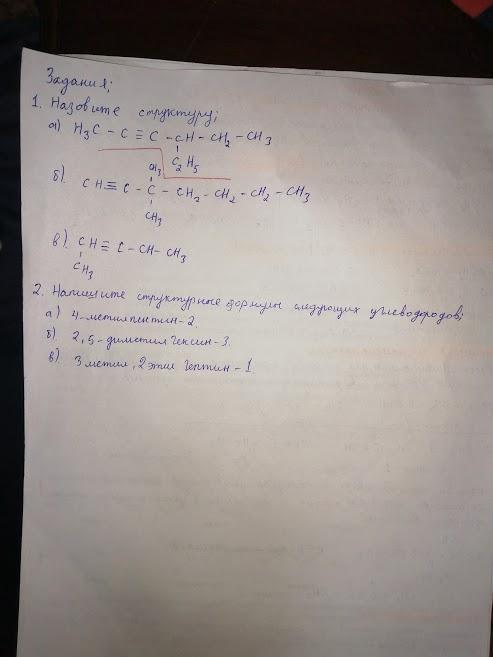 Задания;
1. Назовите структуру;
а) H₃C - C ≡ C - CH - CH₂ - CH₃
C₂H₅
б). CH₃
CH≡ C - C - CH₂ - CH₂ - CH₂ - CH₃
CH₃
в). CH ≡ C - CH - CH₃
CH₃
2. Напишите структурные формулы следующих углеводородов;
а) 4-метилпентин-2.
б). 2,5-диметил гексин-3.
в). 3 метил, 2 этил гептин-1.